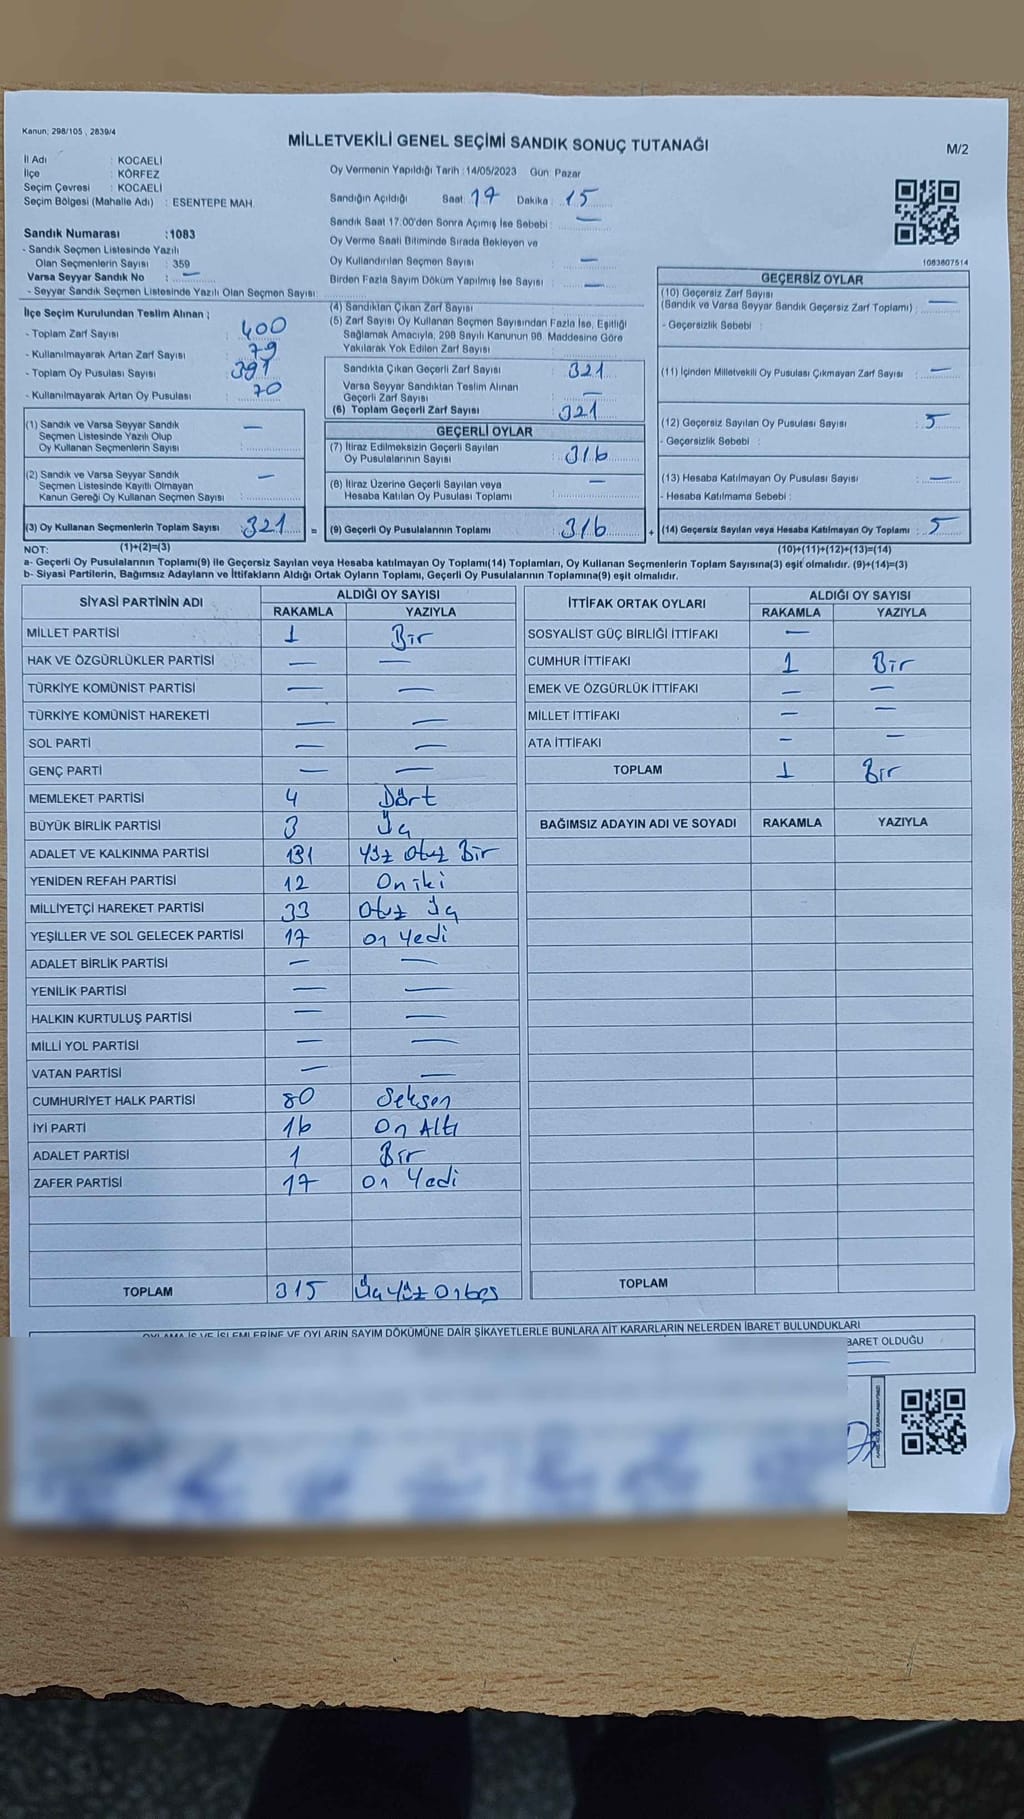 Kanun; 298/105 , 2839/4
MİLLETVEKİLİ GENEL SEÇİMİ SANDIK SONUÇ TUTANAĞI
M/2
İl Adı : KOCAELİ
İlçe : KÖRFEZ
Seçim Çevresi : KOCAELİ
Seçim Bölgesi (Mahalle Adı) : ESENTEPE MAH.
Oy Vermenin Yapıldığı Tarih : 14/05/2023 Gün: Pazar
Sandığın Açıldığı Saat: 17 Dakika : 15
Sandık Saat 17.00'den Sonra Açımış İse Sebebi : —
Oy Verme Saati Bitiminde Sırada Bekleyen ve
Oy Kullandırılan Seçmen Sayısı : —
Birden Fazla Sayım Döküm Yapılmış İse Sayısı : —
Sandık Numarası :1083
- Sandık Seçmen Listesinde Yazılı
Olan Seçmenlerin Sayısı : 359
Varsa Seyyar Sandık No : —
- Seyyar Sandık Seçmen Listesinde Yazılı Olan Seçmen Sayısı:
1083807514
İlçe Seçim Kurulundan Teslim Alınan ;
- Toplam Zarf Sayısı : 400
- Kullanılmayarak Artan Zarf Sayısı : 79
- Toplam Oy Pusulası Sayısı : 391
- Kullanılmayarak Artan Oy Pusulası : 70
(1) Sandık ve Varsa Seyyar Sandık —
Seçmen Listesinde Yazılı Olup
Oy Kullanan Seçmenlerin Sayısı :
(2) Sandık ve Varsa Seyyar Sandık —
Seçmen Listesinde Kayıtlı Olmayan
Kanun Gereği Oy Kullanan Seçmen Sayısı :
(3) Oy Kullanan Seçmenlerin Toplam Sayısı : 321 =
(1)+(2)=(3)
(4) Sandıktan Çıkan Zarf Sayısı :
(5) Zarf Sayısı Oy Kullanan Seçmen Sayısından Fazla İse, Eşitliği
Sağlamak Amacıyla, 298 Sayılı Kanunun 98. Maddesine Göre
Yakılarak Yok Edilen Zarf Sayısı :
Sandıkta Çıkan Geçerli Zarf Sayısı : 321
Varsa Seyyar Sandıktan Teslim Alınan
Geçerli Zarf Sayısı : —
(6) Toplam Geçerli Zarf Sayısı : 321
GEÇERLİ OYLAR
(7) İtiraz Edilmeksizin Geçerli Sayılan
Oy Pusulalarının Sayısı : 316
(8) İtiraz Üzerine Geçerli Sayılan veya —
Hesaba Katılan Oy Pusulası Toplamı :
(9) Geçerli Oy Pusulalarının Toplamı : 316 +
GEÇERSİZ OYLAR
(10) Geçersiz Zarf Sayısı
(Sandık ve Varsa Seyyar Sandık Geçersiz Zarf Toplamı) : —
- Geçersizlik Sebebi :
(11) İçinden Milletvekili Oy Pusulası Çıkmayan Zarf Sayısı : —
(12) Geçersiz Sayılan Oy Pusulası Sayısı : 5
- Geçersizlik Sebebi :
(13) Hesaba Katılmayan Oy Pusulası Sayısı : —
- Hesaba Katılmama Sebebi :
(14) Geçersiz Sayılan veya Hesaba Katılmayan Oy Toplamı : 5
(10)+(11)+(12)+(13)=(14)
NOT:
a- Geçerli Oy Pusulalarının Toplamı(9) ile Geçersiz Sayılan veya Hesaba katılmayan Oy Toplamı(14) Toplamları, Oy Kullanan Seçmenlerin Toplam Sayısına(3) eşit olmalıdır. (9)+(14)=(3)
b- Siyasi Partilerin, Bağımsız Adayların ve İttifakların Aldığı Ortak Oyların Toplamı, Geçerli Oy Pusulalarının Toplamına(9) eşit olmalıdır.
SİYASİ PARTİNİN ADI ALDIĞI OY SAYISI
RAKAMLA YAZIYLA
MİLLET PARTİSİ 1 Bir
HAK VE ÖZGÜRLÜKLER PARTİSİ — —
TÜRKİYE KOMÜNİST PARTİSİ — —
TÜRKİYE KOMÜNİST HAREKETİ — —
SOL PARTİ — —
GENÇ PARTİ — —
MEMLEKET PARTİSİ 4 Dört
BÜYÜK BİRLİK PARTİSİ 3 Üç
ADALET VE KALKINMA PARTİSİ 131 Yüz Otuz Bir
YENİDEN REFAH PARTİSİ 12 On iki
MİLLİYETÇİ HAREKET PARTİSİ 33 Otuz Üç
YEŞİLLER VE SOL GELECEK PARTİSİ 17 on Yedi
ADALET BİRLİK PARTİSİ — —
YENİLİK PARTİSİ — —
HALKIN KURTULUŞ PARTİSİ — —
MİLLİ YOL PARTİSİ — —
VATAN PARTİSİ — —
CUMHURİYET HALK PARTİSİ 80 Seksen
İYİ PARTİ 16 On Altı
ADALET PARTİSİ 1 Bir
ZAFER PARTİSİ 17 On Yedi
TOPLAM 315 Üç Yüz Onbeş
İTTİFAK ORTAK OYLARI ALDIĞI OY SAYISI
RAKAMLA YAZIYLA
SOSYALİST GÜÇ BİRLİĞİ İTTİFAKI —
CUMHUR İTTİFAKI 1 Bir
EMEK VE ÖZGÜRLÜK İTTİFAKI — —
MİLLET İTTİFAKI — —
ATA İTTİFAKI — —
TOPLAM 1 Bir
BAĞIMSIZ ADAYIN ADI VE SOYADI RAKAMLA YAZIYLA
TOPLAM
OYLAMA İŞ VE İŞLEMLERİNE VE OYLARIN SAYIM DÖKÜMÜNE DAİR ŞİKAYETLERLE BUNLARA AİT KARARLARIN NELERDEN İBARET BULUNDUKLARI
BARET OLDUĞU